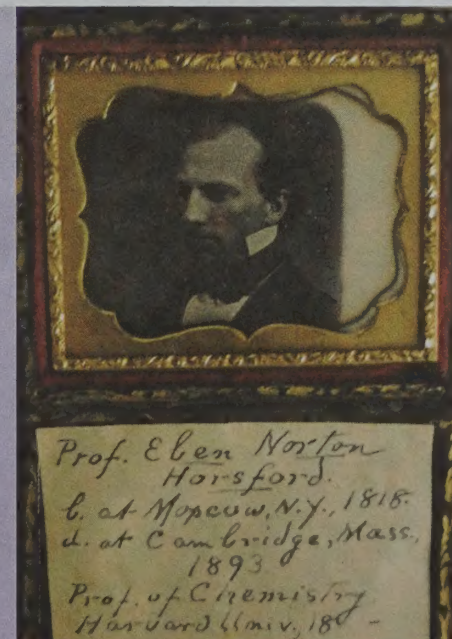 Prof. Eben Norton
Horsford.
b. at Moscow, N.Y., 1818.
d. at Cambridge, Mass.,
1893
Prof. of Chemistry
Harvard Univ., 18 -